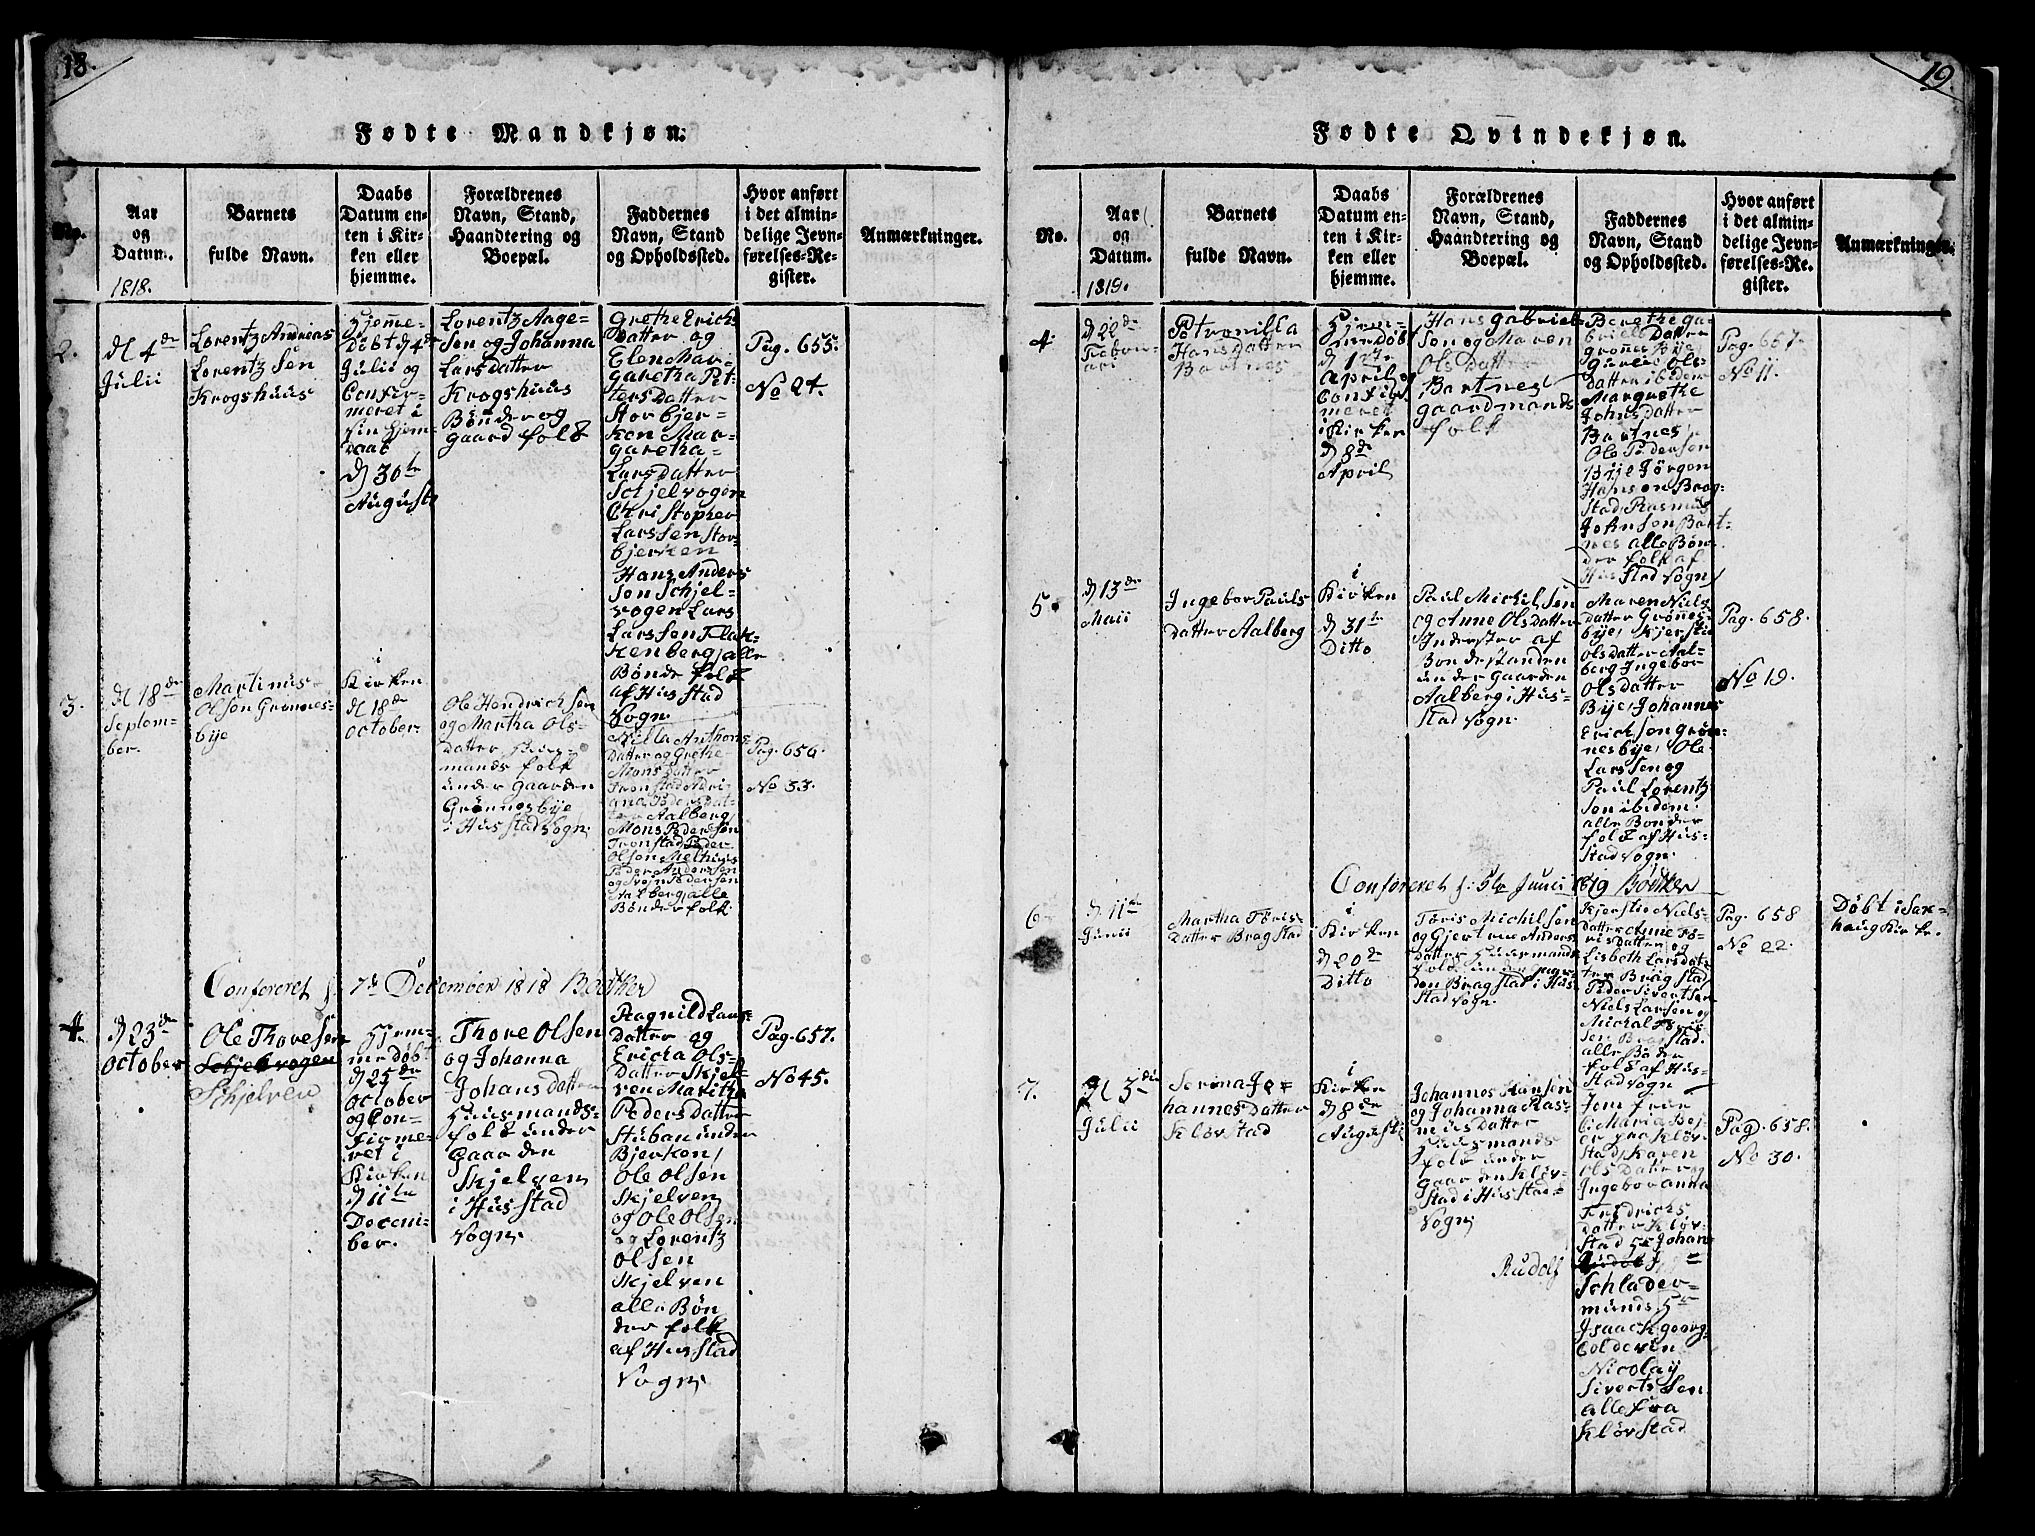 18.
Fødte Mandkjøn.
No.
Aar
og
Datum.
1818.
Barnets
fulde Navn.
Daabs
Datum en-
ten i Kir-
ken eller
hjemme.
Forældrenes
Navn, Stand,
Haandtering og
Boepæl.
Faddernes
Navn, Stand
og Opholdssted.
Hvor anført
i det almin-
delige Jevn-
førelses-Re-
gister.
Anmærkninger.
2.
d 4de
Julii
Lorentz Andreas
Lorentz Sen
Krogshuus
Hjemme-
Døbt d 4de
Julii og
Confir-
meret i
sin Hjem-
Daab
d 30te
Augusti
Lorentz Aage-
Sen og Johanna
Larsdatter
Krogshuus
Bønder og
gaard folk
Grethe Erichs
Datter og
Elen Mar-
garetha Pit-
tersDatter
Storbjer-
ken Mar-
garetha-
LarsDatter
Schjelvogen
Christopher
LarsSen Stor-
bjerken
Hans Anders
Son Schjel-
vogen Lars
LarsSen Flak-
kenberg, alle
Bønde folk
af Husstad
Sogn
Pag. 655.
No 24.
3.
d 18de
Septem-
ber.
Martinus
Olsen Grønnes-
bye
i
Kirken
d 18de
October
Ole Hendrichsen
og Martha Ols-
datter Huus-
mands folk
under Gaarden
Grønnesbye
i Husstad Sogn.
Killa Anthons
Datter og Grethe
Mons Datter
Tronstad Adri-
ana PedersDat-
ter Aalberg,
Mons Pedersen
Tronstad Peder
Olsen Melhuus
Peder Andersen
og Svejn Pedersen
Aalberg, alle
Bønder folk
Pag. 656.
No 33.
Confereret 7de December 1818 Bødtker
4.
d 23de
October
Ole Thoresen
Schjelvogen
Schjelven
Hjem-
me døbt
d 25de
October
og Con-
firme-
ret i
Kirken
d 11te
Decem-
ber.
Thore Olsen
og Johanna
JohansDatter
Huusmands-
folk under
Gaarden
Skjelven
i Husstad
Sogn
Ragnild Lars-
Datter og
Ericha Ols-
Datter Skjel-
ven Maritha
PedersDatter
Stuban under
Bjerken,
Ole Olsen
Skjelven
og Ole Olsen
og Lorentz
Olsen
Skjelven
alle Bøn
der folk
af Husstad
Sogn
Pag. 657.
No 45.
19.
Fødte Qvindekjøn.
No.
Aar
og
Datum.
1819.
Barnets
fulde Navn.
Daabs
Datum en-
ten i Kir-
ken eller
hjemme.
Forældrenes
Navn, Stand,
Haandtering og
Boepæl.
Faddernes
Navn, Stand
og Opholdssted.
Hvor anført
i det almin-
delige Jevn-
førelses-Re-
gister.
Anmærkninger.
4.
d 22de
Februa-
ari
Petronilla
HansDatter
Bartnes
Hjem-
medøbt
d 1ste
April og
Confir-
meret
i Kirken
d 8de
April
Hans Gabriel
Son og Maren
OlsDatter
Bartnes
gaardmands
folk
Berethe Ga-
briels Datter
Grønnesbye
Gurie Ols-
datter ibidem
Margrethe
JohnsDatter
Bartnes
Ole Pedersen
Bye Jørgen
Hansen Brag-
stad Rasmus
Johnsen Bart-
nes alle Bøn-
der folk af
Husstad Sogn
Pag. 657.
No 11.
5.
d 13de
Maii
Ingebor Pauls
datter Aalberg
i
Kirken
d 31te
Ditto
Paul Michelsen
og Anne OlsDatter
Inderster af
Bondestanden
under Gaarden
Aalberg i Hus-
stad Sogn.
Maren Niels
datter Grønnes-
bye, Kjersti
Olsdatter Aal-
berg Ingebor
OlsDatter
Bye, Johannes
Erichsen Grøn-
nesbye, Ole
LarsSen og
Paul Lorentz
Sen ibidem
alle Bonder
folk af Hus-
stad Sogn.
Pag. 658.
No 19.
Confereret 5te Junii 1819 Bødtker
6
d 11te
Junii
Martha Tøris-
Datter Bragstad
i
Kirken
d 20de
Ditto
Tøris Michelsen
og Gjertrue Anders
Datter Huusmands
folk under Gaar-
den Bragstad i Hus
stad Sogn.
Kjerstie Niels-
datter Anne Tø-
risDatter og
Lisbeth Larsdat-
ter Bragstad
Peder Sivertsen
Niels Larsen og
Michal Tøris-
sen Bragstad.
alle Bønder
folk af Hus-
stad Sogn
Pag. 658
No 22.
Døbt i Sak-
haug Kirke.
7.
d 3die
Julii
Serina Jo-
hannesDatter
Kløvstad
i
Kirken
d 8de
Augusti
Johannes Hansen
og Johanna Ras-
musDatter
Huusmands
folk under
Gaarden Kløv-
stad i Husstad
Sogn
Rudolf
Jomfrue
Maria
Kløv-
stad, Karen
OlsDatter og
Ingebor Anna
Fredrichs
Datter Kløv-
stad Hr Johan
Schlader-
munds Hr
Isaack Georg
Coldevin
Nicolay
Siverts Sen
alle fra
Kløvstad
Pag. 658.
No 30.